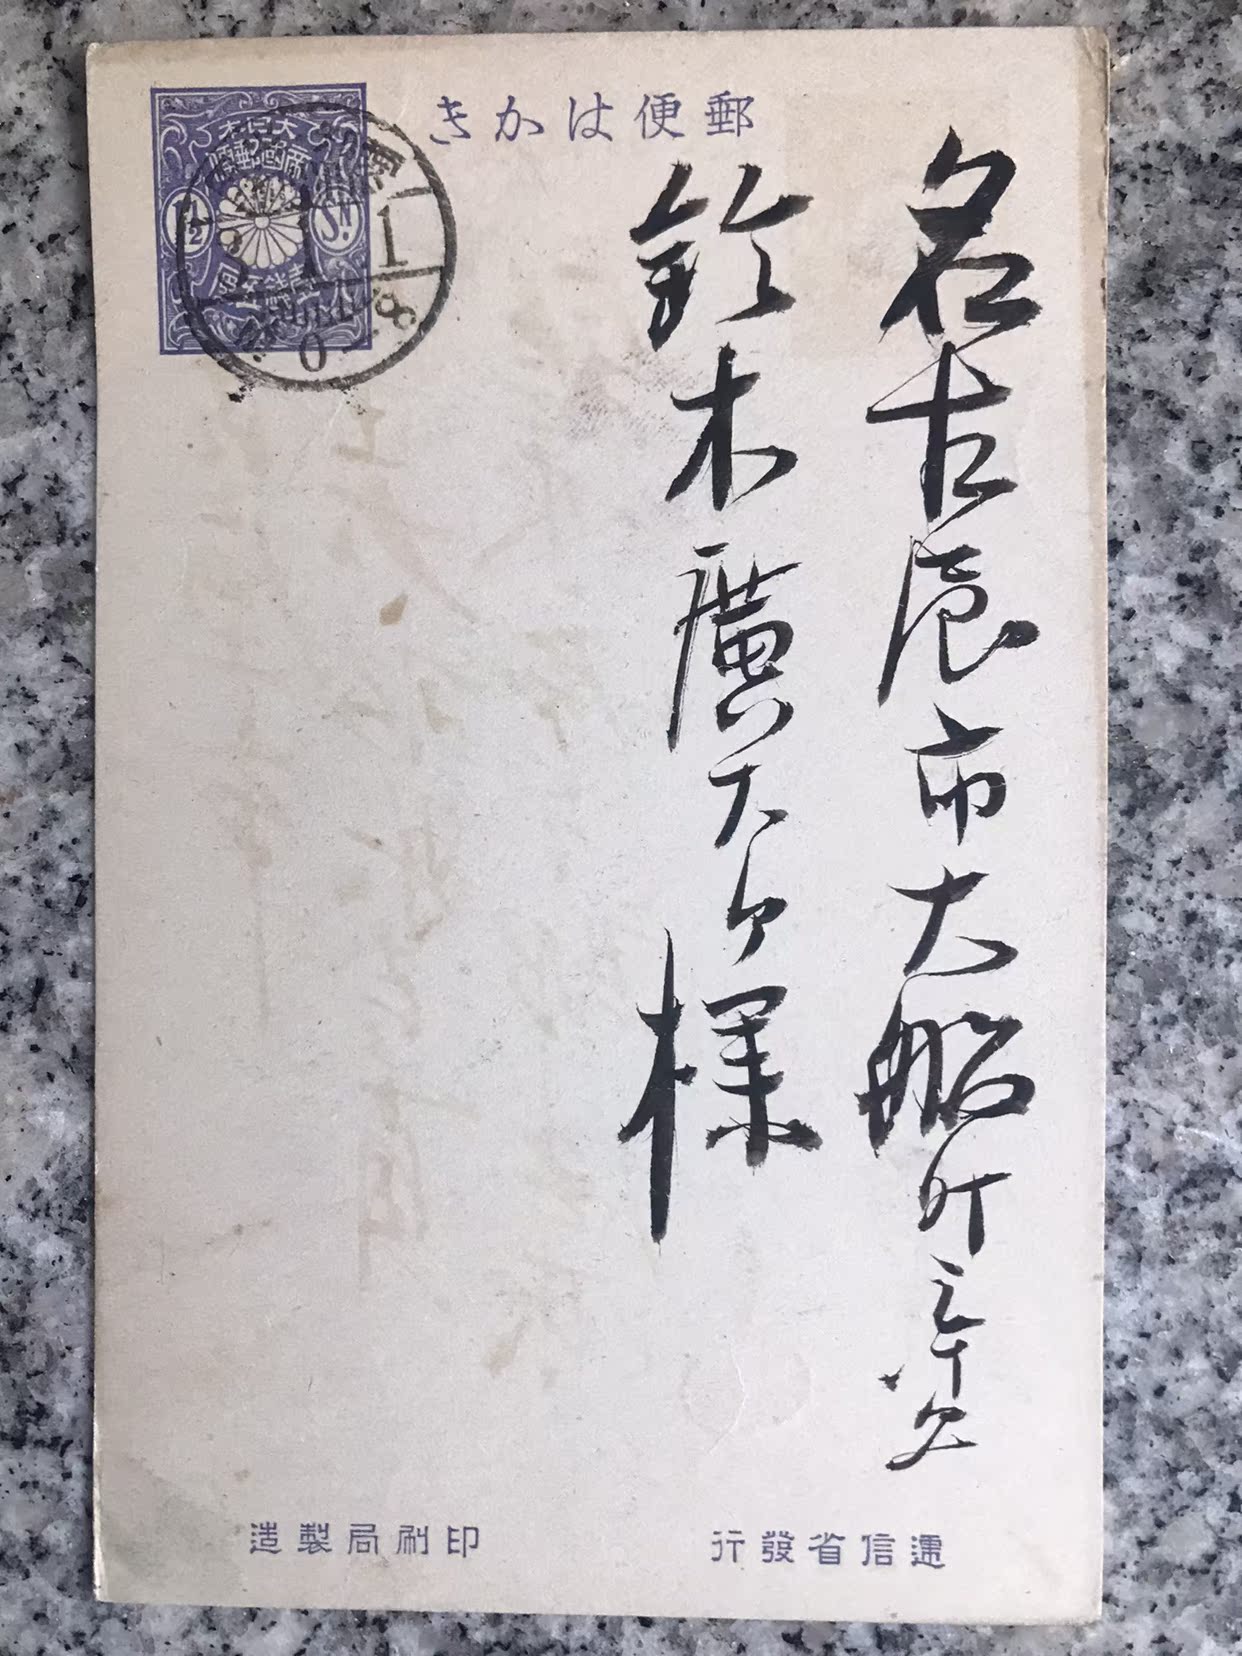 郵便はかき
大日本
帝國郵便
1½
Sn.
壹錢五厘
1
1
名古屋市大船町三ノ十
鈴木廣太郎様
遞信省發行
印刷局製造